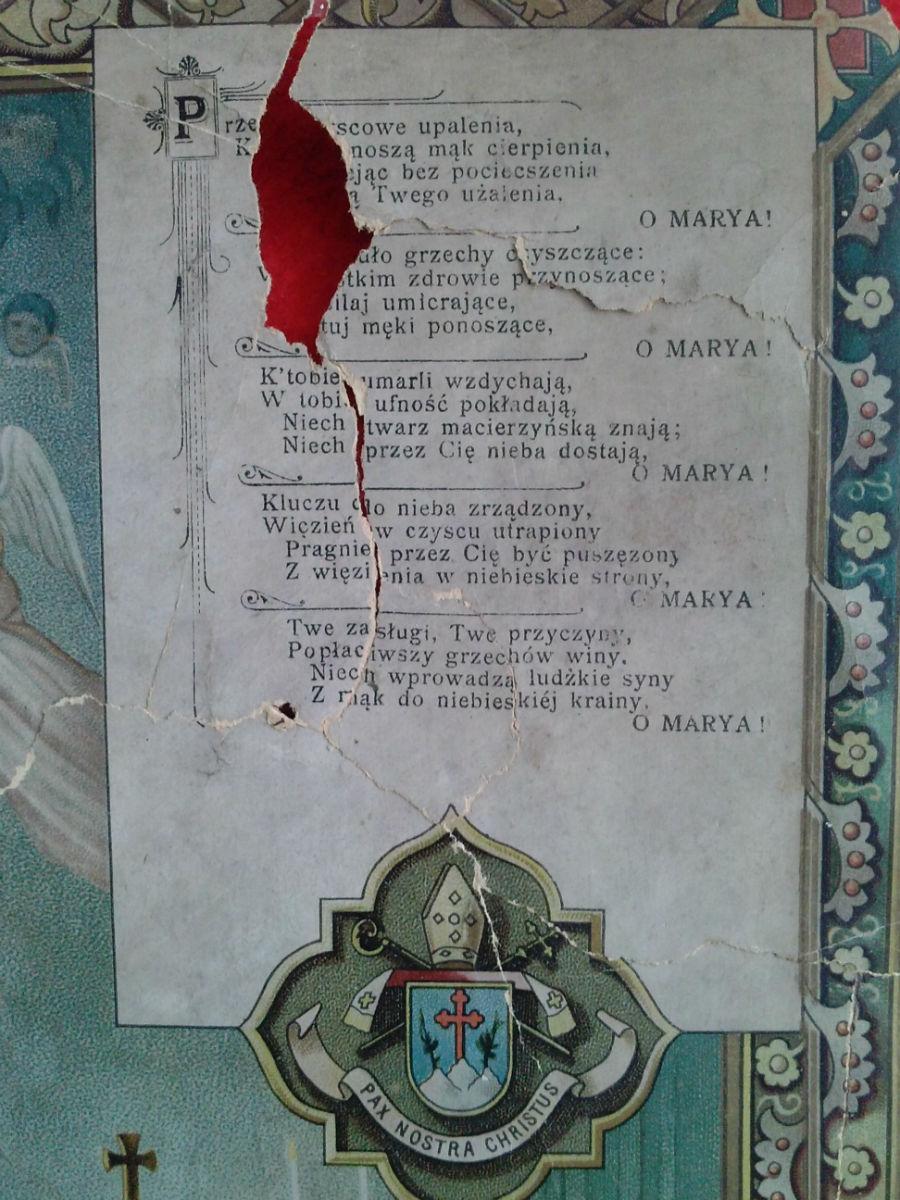 Prze scowe upalenia,
K noszą mąk cierpienia,
jąc bez pociecszenia
Twego użalenia.
O MARYA!
dło grzechy czyszczące:
stkim zdrowie przynoszące;
ilaj umierające,
tuj męki ponoszące,
O MARYA!
K'tobie umarli wzdychają,
W tobie ufność pokładają,
Niech twarz macierzyńską znają;
Niech przez Cię nieba dostają,
O MARYA!
Kluczu do nieba zrządzony,
Więzień w czyscu utrapiony
Pragnie przez Cię być puszęzony
Z więzienia w niebieskie strony,
O MARYA!
Twe zasługi, Twe przyczyny,
Popłaciwszy grzechów winy,
Niech wprowadzą ludżkie syny
Z mąk do niebieskiéj krainy.
O MARYA!
PAX NOSTRA CHRISTUS